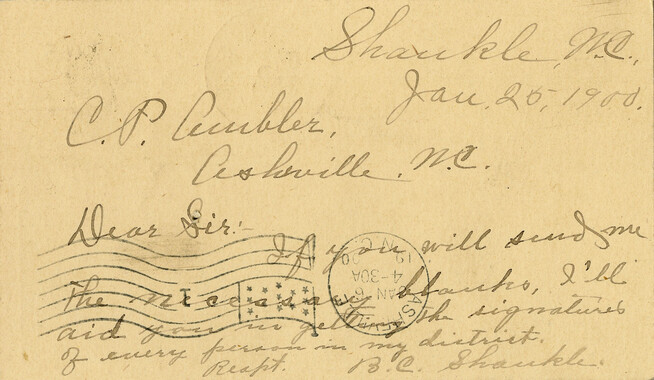 Shankle, N.C.,
Jan. 25, 1900.
C. P. Ambler,
Asheville, N.C.
Dear Sir:-
If you will send me
the necessary blanks, I'll
aid you in getting the signatures
of every person in my district.
Respt. B. C. Shankle.
4-30A
N.C.
1